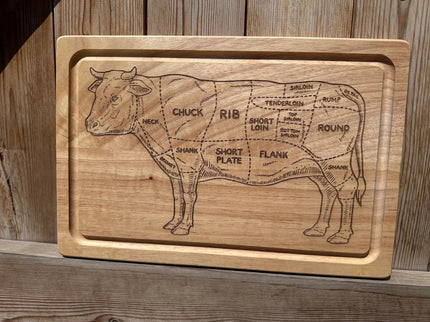 SIRLOIN
TENDERLOIN
RUMP
NECK
CHUCK
RIB
SHORT
LOIN
TOP
SIRLOIN
BOTTOM
SIRLOIN
ROUND
BRISKET
SHANK
SHORT
PLATE
FLANK
SHANK